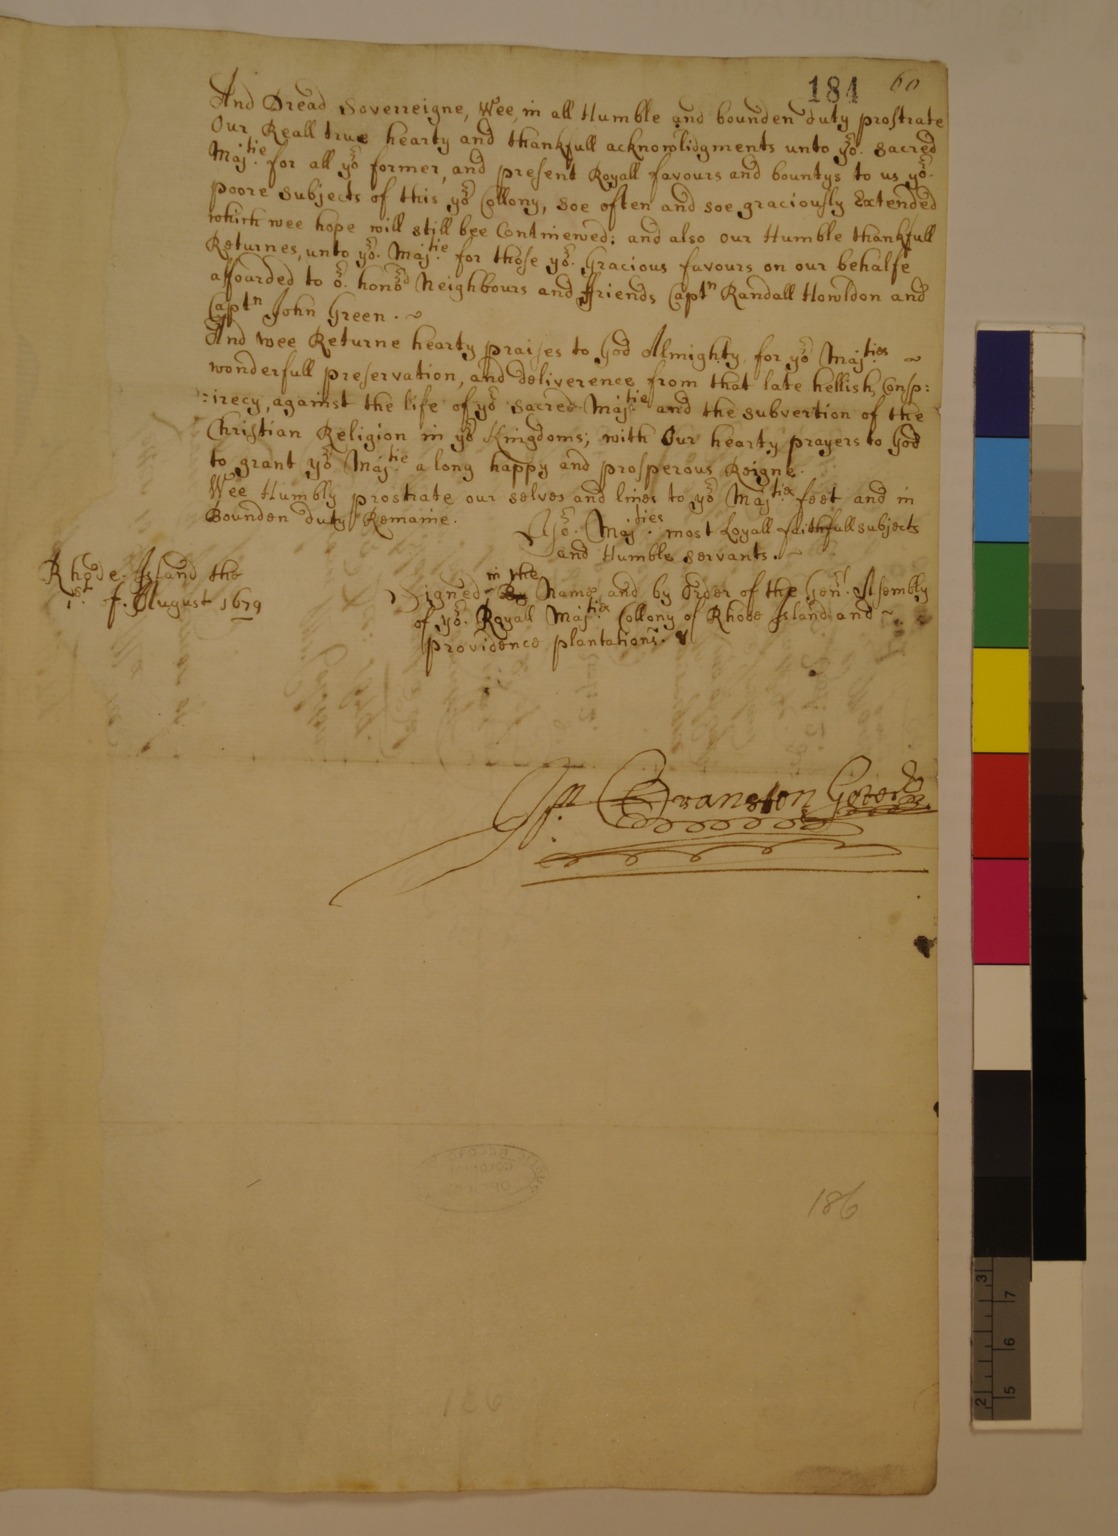 184 60
And Dread Soverreigne, Wee, in all Humble and bounden duty prostrate
Our Reall true hearty and thankfull acknowlidgments unto yor. Sacred
Majtie. for all yor former, and present Royall favours and bountys to us yor.
poore Subjects of this yor Collony, Soe often and soe graciously Extended
which wee hope will still bee Contniewed; and also our Humble thankfull
Returnes, unto yor. Majtie. for those yor. Gracious favours on our behalfe
affoarded to or. honord Neighbours and ffriends Captn Randall Howldon and
Captn John Green. ~
And wee Returne hearty praises to God Almighty, for yor Majties ~
wonderfull preservation, and deliverence from that late hellish, Consp:
:irecy, against the life of yor Sacred Majtie and the subvertion of the
Christian Religion in yor Kingdoms; with Our hearty prayers to God
to grant yor Majtie a long happy and prosperous Reigne.
Wee Humbly prostrate our selves and lines to yor Majties feet and in
Bounden duty Remaine.
Yor. Majties. most Loyall faithfull subjects
and Humble servants. ~
Rhode Island the
1st. f. August 1679
in the
Signed By Name, and by Order of the Genll. Asembly
of yor. Royall Majties Collony of Rhode Island and ~
providence plantations.
Jn. Cranston Goverr
186